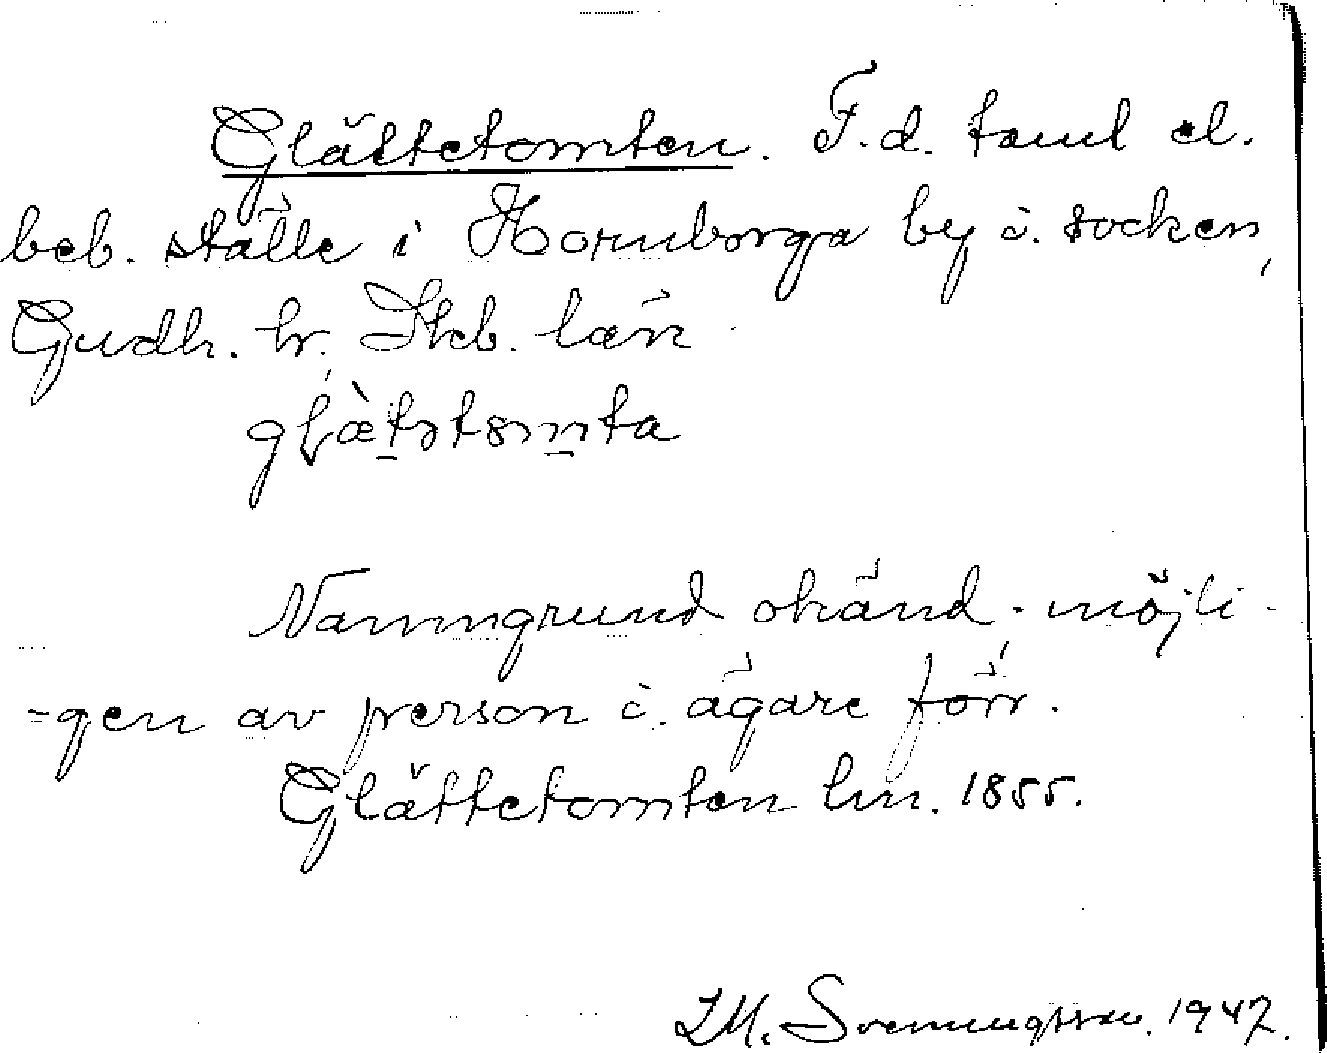 Glättetomten. F.d. tomt el.
beb. ställe i Hornborga by o. socken,
Gudh. hr, Skb. län
Namngrund okänd; möjli-
-gen av person o. ägare förr.
Glättetomten lm. 1855.
Svenningsson. 1947.